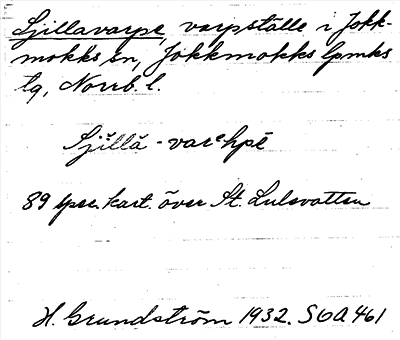 Sjillavarpe, varpställe i Jokk-
mokks sn, Jokkmokks lpmks
tg, Norrb. l.
Sjĭllă - varᵉhpē
89 spec. kart. över St. Lulevatten
H. Grundström 1932. SOA 461